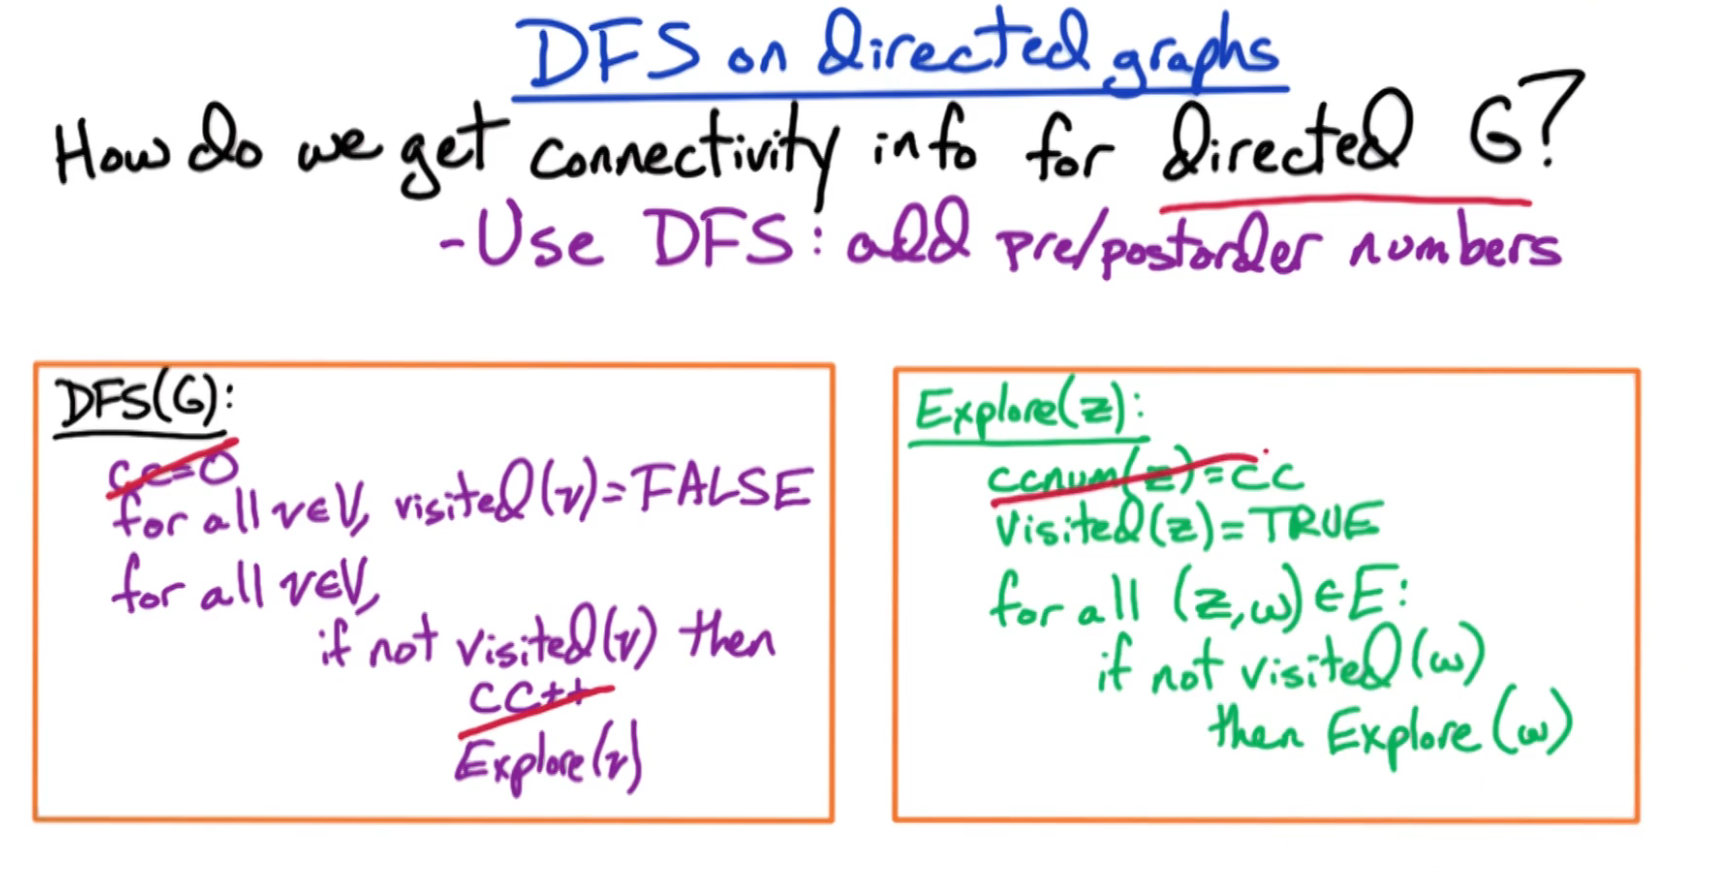 DFS on directed graphs
How do we get connectivity info for directed G?
-Use DFS: add pre/postorder numbers
DFS(G):
cc=0
for all v∈V, visited(v)=FALSE
for all v∈V,
if not visited(v) then
cc++
Explore(v)
Explore(z):
ccnum(z)=cc
visited(z)=TRUE
for all (z,w)∈E:
if not visited(w)
then Explore(w)